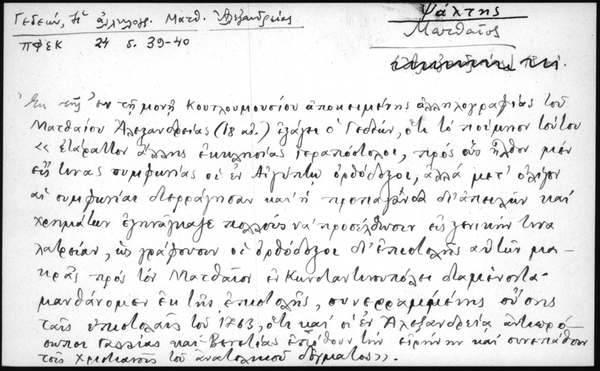 Γεδεών, Ἡ ἀλληλογρ. Ματθ. Ἀλεξανδρείας
ΠΦΕΚ 24 σ. 39-40
Ψάλτης
Ματθαῖος
Ἐκ τῆς ἐν τῇ μονῇ Κουτλουμουσίου ἀποκειμένης ἀλληλογραφίας τοῦ
Ματθαίου Ἀλεξανδρείας (18 αἰ.) ἐξάγει ὁ Γεδεών, ὅτι τὸ ποίμνιον τούτου
« ἐτάραττον ἄλλης ἐκκλησίας ἱεραπόστολοι, πρὸς οὓς ἦλθον μὲν
εἴς τινας συμφωνίας οἱ ἐν Αἰγύπτῳ ὀρθόδοξοι, ἀλλὰ μετ' ὀλίγον
αἱ συμφωνίαι διερράγησαν καὶ ἡ προπαγάνδα δι' ἀπειλῶν καὶ
χρημάτων ἐξηνάγκαζε πολλοὺς νὰ προσέλθωσιν εἰς ξενικήν τινα
λατρείαν, ὡς γράφουσιν οἱ ὀρθόδοξοι δι' ἐπιστολῆς αὐτῶν μα-
κρᾶς πρὸς τὸν Ματθαῖον ἐν Κωνσταντινουπόλει διαμένοντα·
μανθάνομεν ἐκ τῆς ἐπιστολῆς, συνερραμμένης οὔσης
ταῖς ἐπιστολαῖς τοῦ 1763, ὅτι καὶ οἱ ἐν Ἀλεξανδρείᾳ ἀντιπρό-
σωποι Γαλλίας καὶ Βενετίας ἐπόθουν τὴν εἰρήνην καὶ συνεπάθουν
τοῖς χριστιανοῖς τοῦ ἀνατολικοῦ δόγματος».